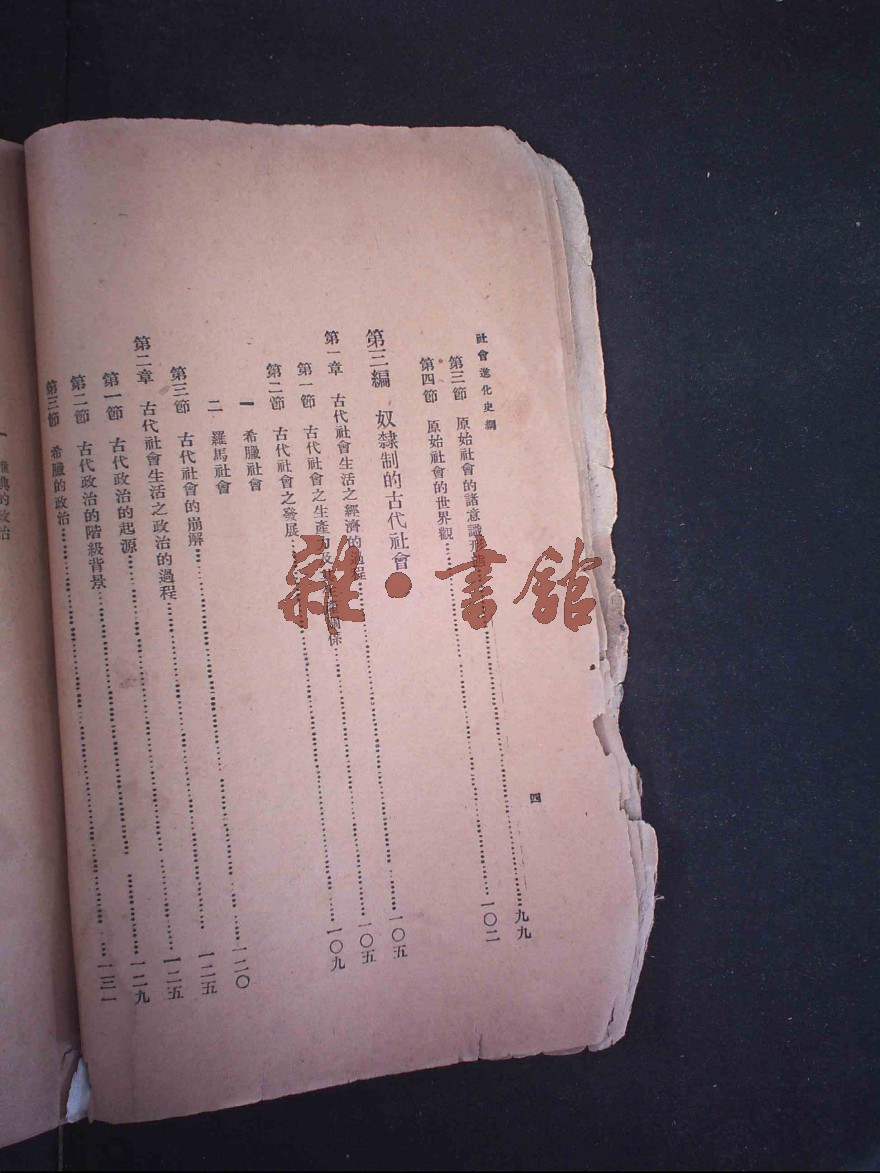 社會進化史綱
四
第三節 原始社會的諸意識形態……九九
第四節 原始社會的世界觀……一〇二
第三編 奴隸制的古代社會
第一章 古代社會生活之經濟的過程……一〇五
第一節 古代社會之生產力及 關係……一〇五
第二節 古代社會之發展……一〇九
一 希臘社會
二 羅馬社會
第三節 古代社會的崩解……一二〇
第二章 古代社會生活之政治的過程……一二五
第一節 古代政治的起源……一二五
第二節 古代政治的階級背景……一二九
第三節 希臘的政治……一三一
一 雅典的政治
雜·書館